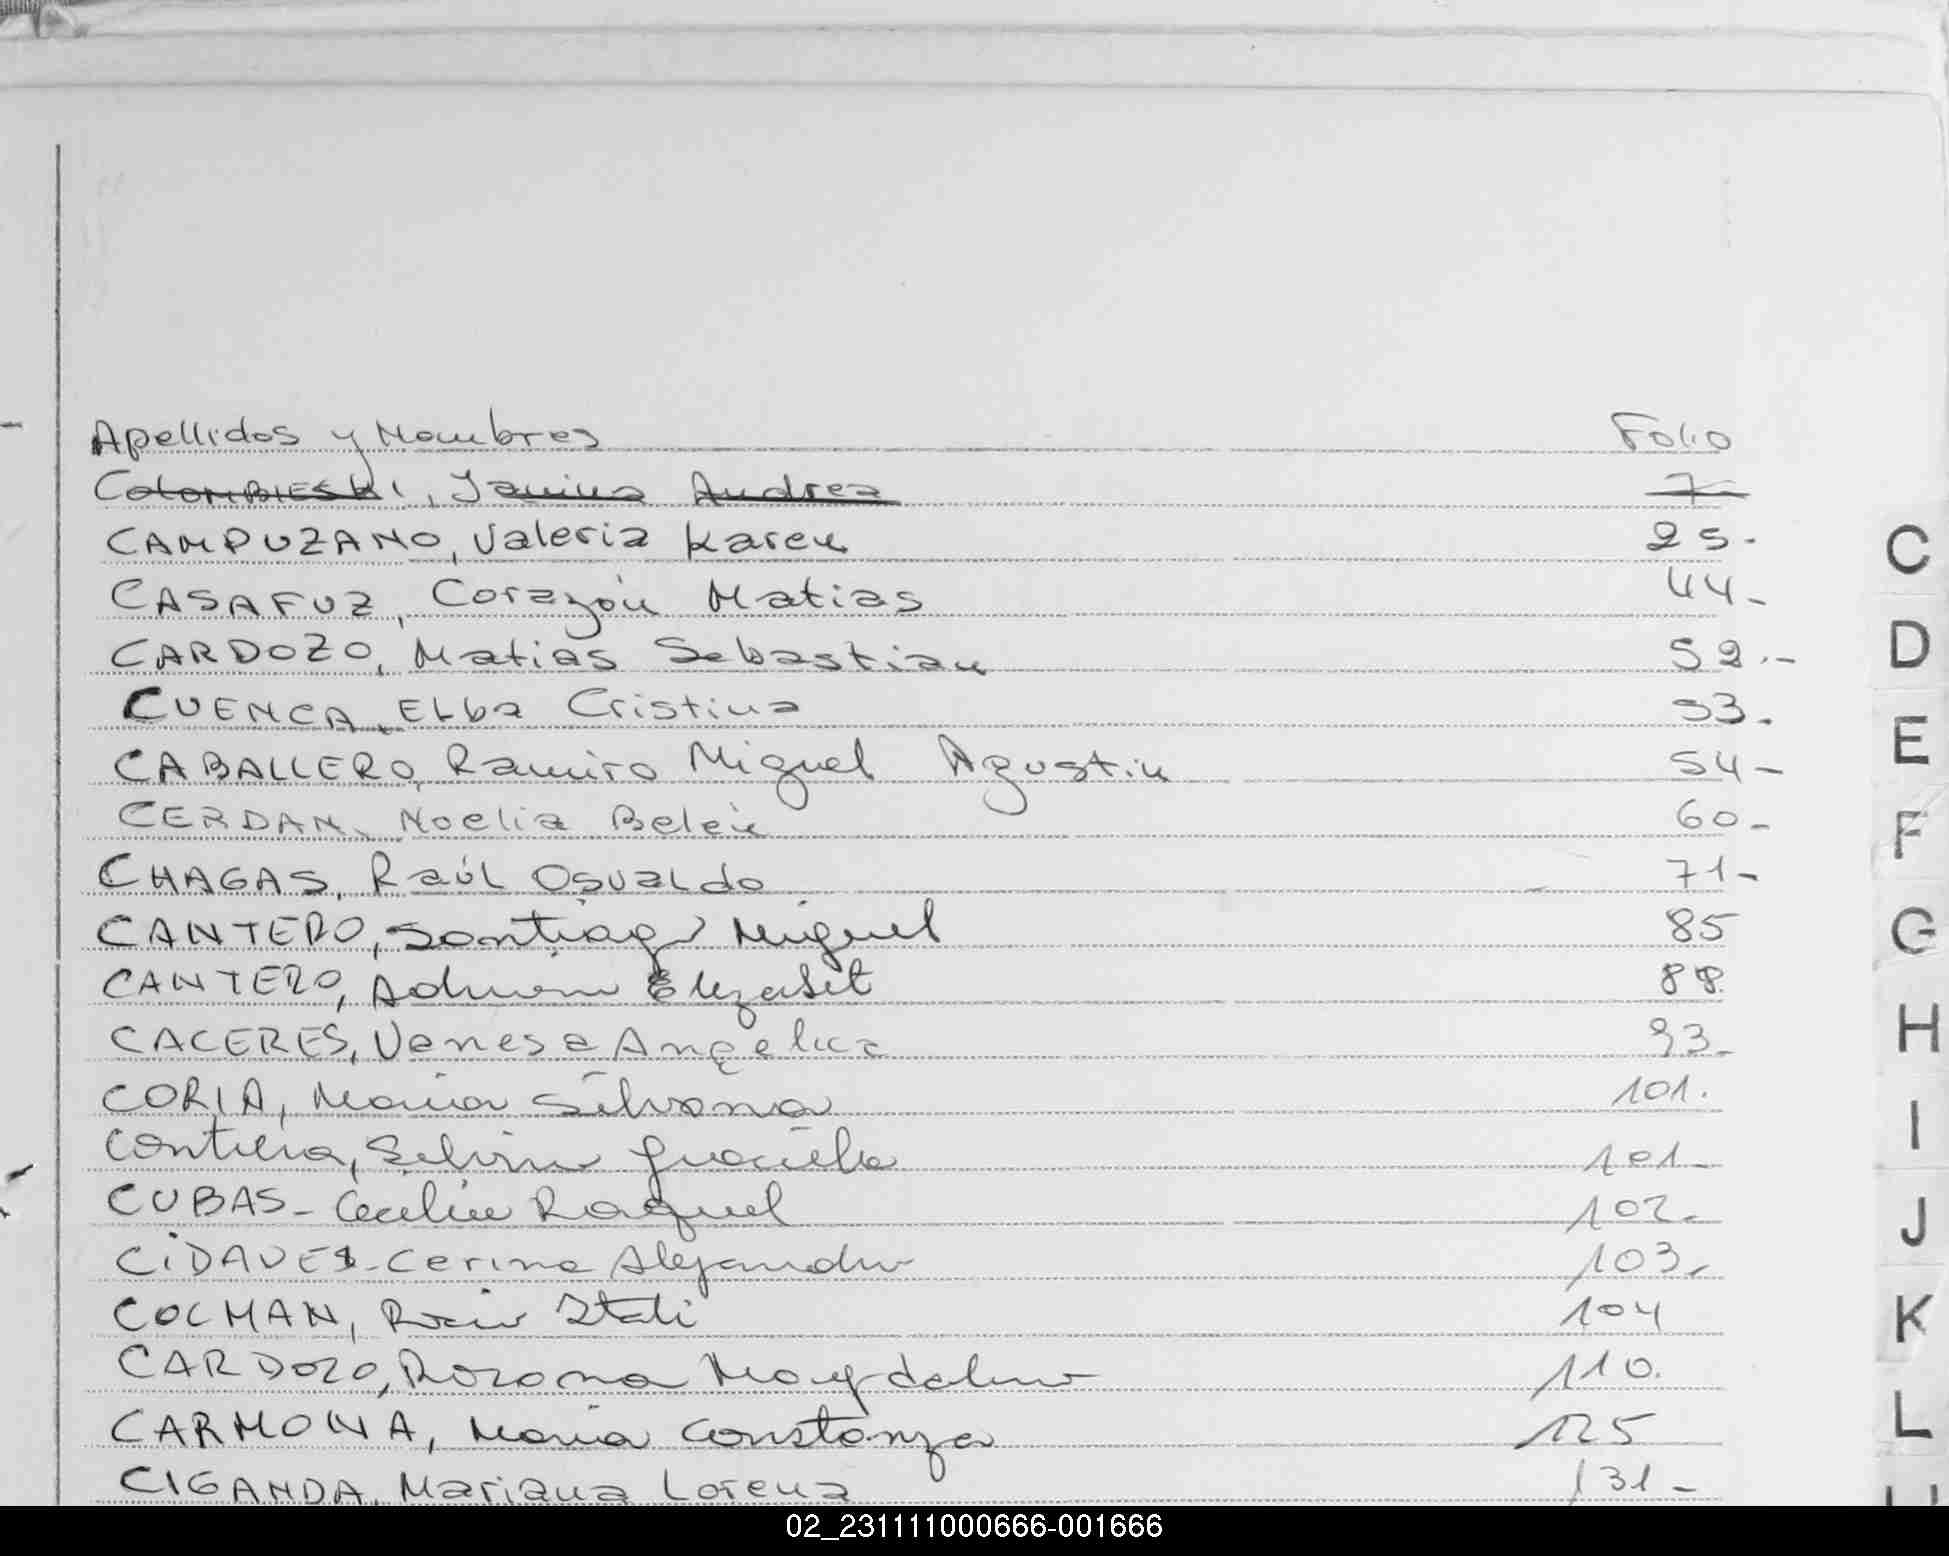 Apellidos y Nombres Folio
Colombieski, Janina Andrea 7-
CAMPUZANO, Valeria Karen 25.
CASAFUZ, Corazón Matias 44-
CARDOZO, Matias Sebastian 52.-
CUENCA, Elba Cristina 53.
CABALLERO, Ramiro Miguel Agustin 54-
CERDAN, Noelia Belén 60-
CHAGAS, Raúl Osvaldo 71-
CANTERO, Santiago Miguel 85
CANTERO, Elizabet 88.
CACERES, Vanesa Angelica 93-
CORIA, Maria Silvana 101.
Graciela 101-
CUBAS- Cecilia Raquel 102.
Alejandra 103.
COLMAN, Rocio Itati 104
CARDOZO, Rozana Magdalena 110.
CARMONA, Maria Constanza 125
CIGANDA, Mariana Lorena 131-
C
D
E
F
G
H
I
J
K
L
02_231111000666-001666